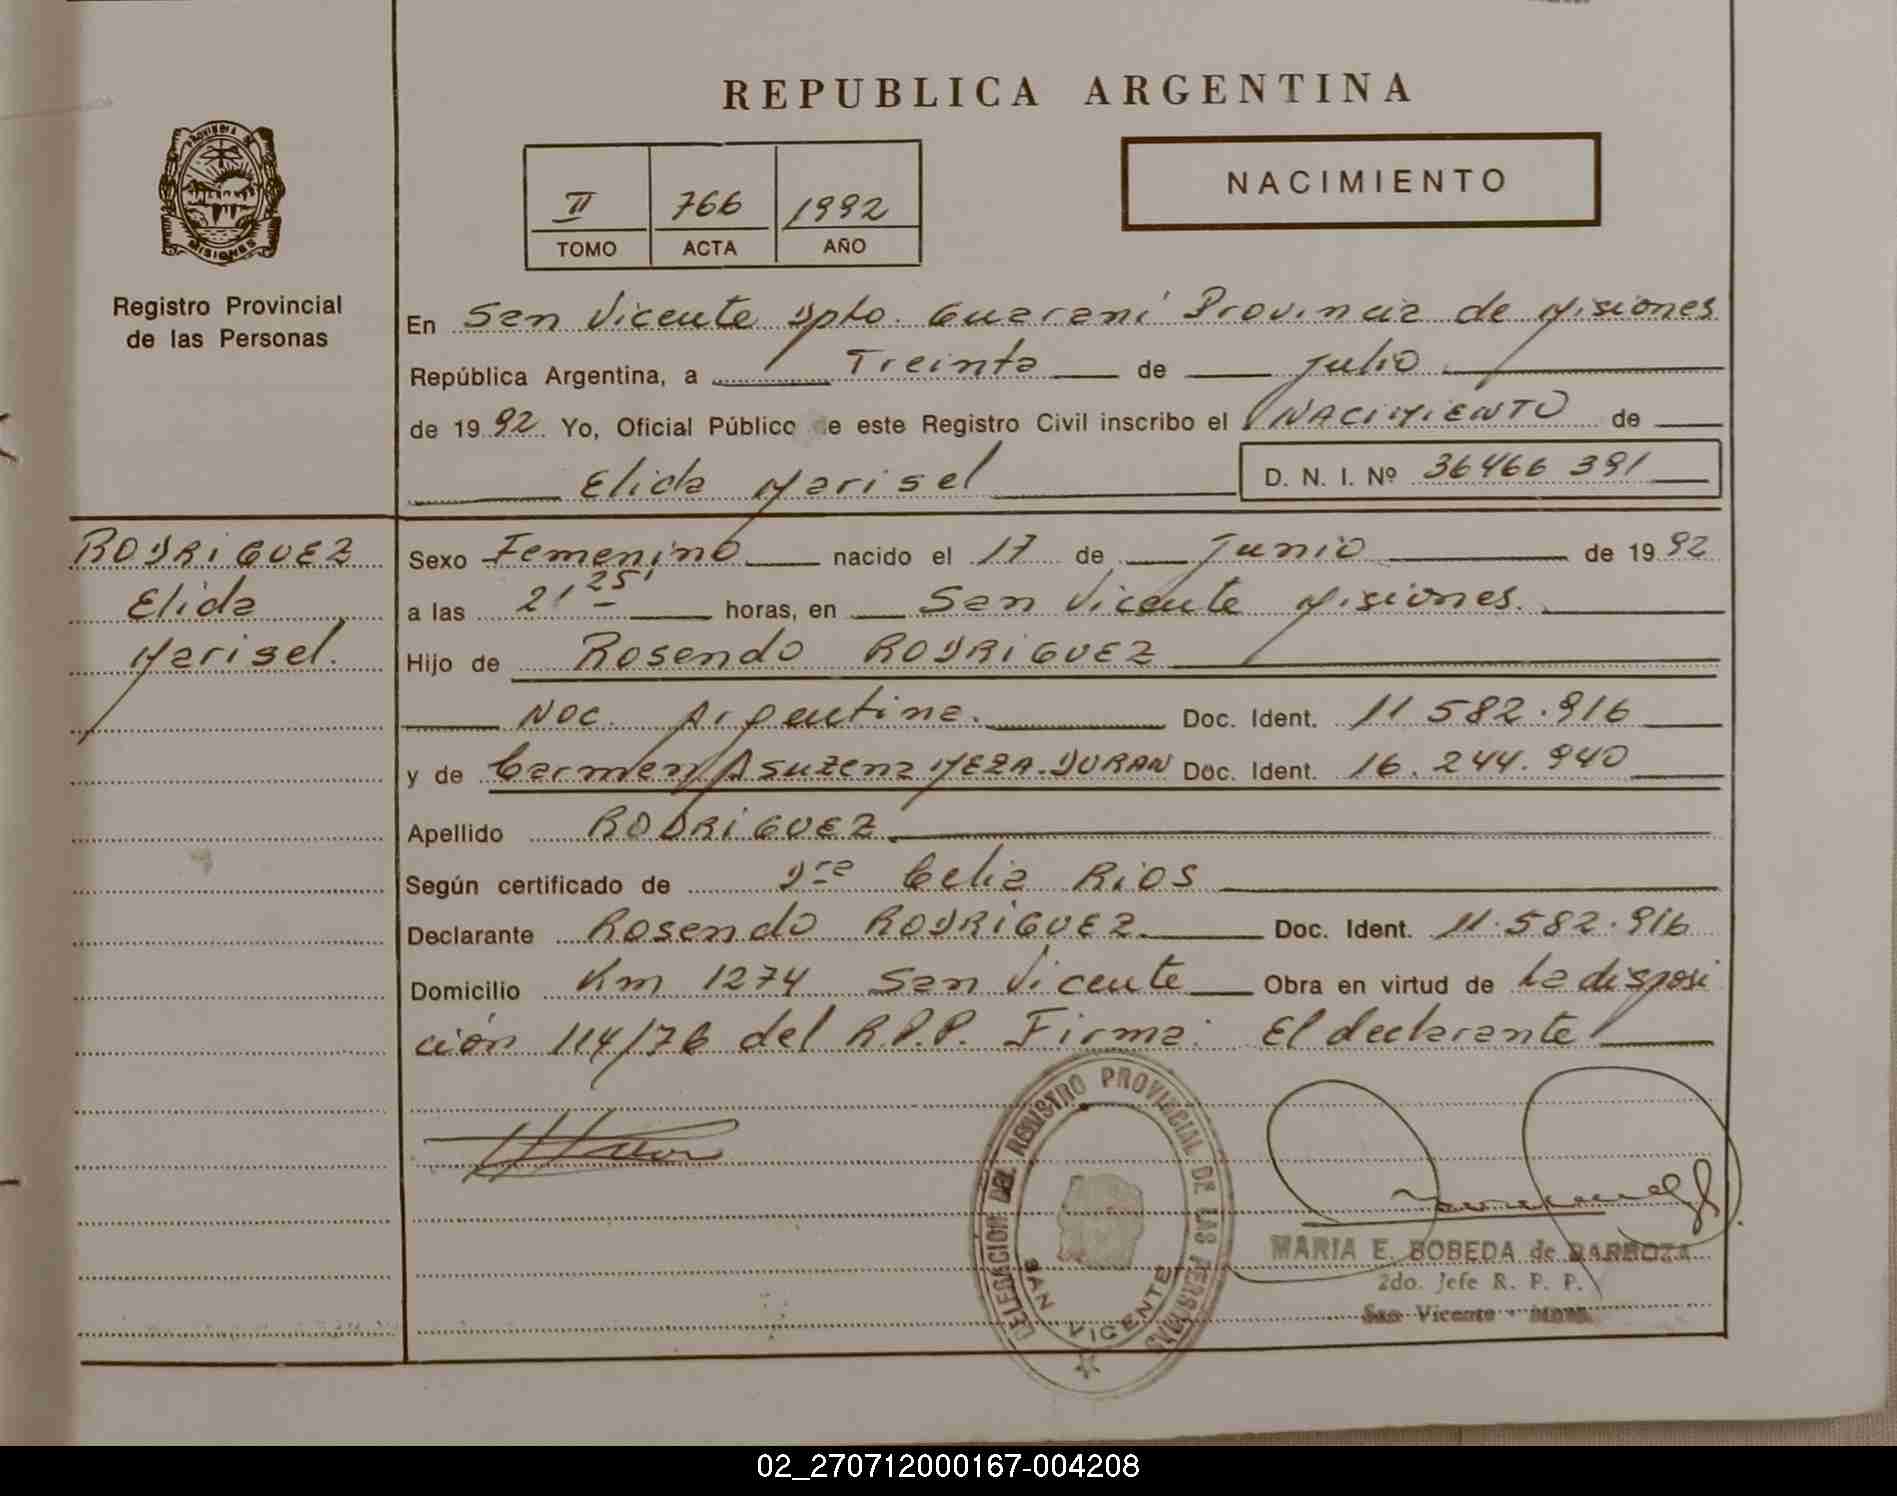 REPUBLICA ARGENTINA
PROVINCIA DE
MISIONES
Registro Provincial
de las Personas
II 766 1992
TOMO ACTA AÑO
NACIMIENTO
En San Vicente Dpto. Guaraní Provincia de Misiones
República Argentina, a Treinta de Julio
de 1992 Yo, Oficial Público de este Registro Civil inscribo el NACIMIENTO de
Elida Marisel D. N. I. Nº 36466 391
RODRIGUEZ
Elida
Marisel.
Sexo Femenino nacido el 17 de Junio de 1992
a las 21 25' horas, en San Vicente Misiones.
Hijo de Rosendo RODRIGUEZ
Nac. Argentina. Doc. Ident. 11 582.916
y de Carmen Asuzena MEZA.DURAN Doc. Ident. 16.244.940
Apellido RODRIGUEZ
Según certificado de Dra Celia RIOS
Declarante Rosendo RODRIGUEZ Doc. Ident. 11.582.916
Domicilio Km 1274 San Vicente Obra en virtud de La disposi
ción 114/76 del R.P.P. Firma: El declarante
DELEGACION DEL REGISTRO PROVINCIAL DE LAS PERSONAS
SAN VICENTE
MARIA E. BOBEDA de BARBOZA
2do. Jefe R. P. P.
San Vicente - Mnes.
02_270712000167-004208